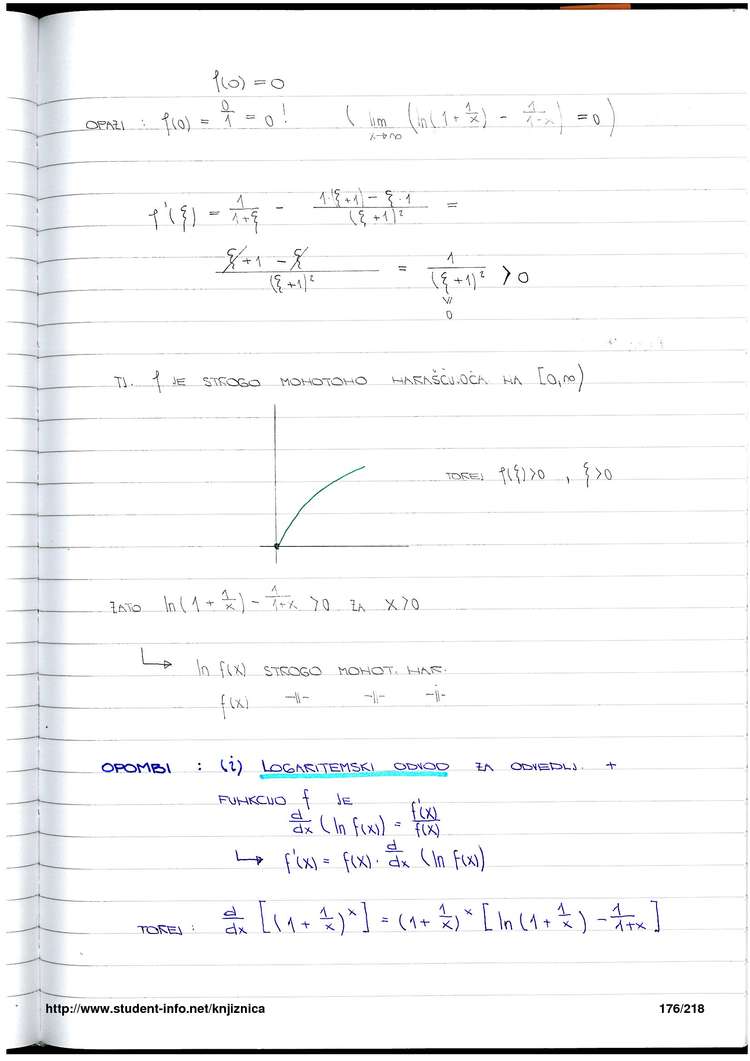 f(0) = 0
OPAZI : f(0) = 0/1 = 0 ! ( lim x→∞ (ln(1 + 1/x) - 1/(1+x)) = 0 )
f'(ξ) = 1/(1+ξ) - (1·(ξ+1) - ξ·1)/(ξ+1)² =
(ξ+1 - ξ)/(ξ+1)² = 1/(ξ+1)² > 0
0
TJ. f JE STROGO MONOTONO NARAŠČUJOČA NA [0,∞)
TOREJ f(ξ)>0 , ξ>0
ZATO ln(1 + 1/x) - 1/(1+x) > 0 ZA x>0
↳ ln f(x) STROGO MONOT. NAR.
f(x) -||- -||- -||-
OPOMBI : (i) LOGARITEMSKI ODVOD ZA ODVEDLJ. +
FUNKCIJO f JE
d/dx (ln f(x)) = f'(x)/f(x)
↳ f'(x) = f(x) · d/dx (ln f(x))
TOREJ : d/dx [(1 + 1/x)^x] = (1 + 1/x)^x [ln(1 + 1/x) - 1/(1+x)]
http://www.student-info.net/knjiznica 176/218